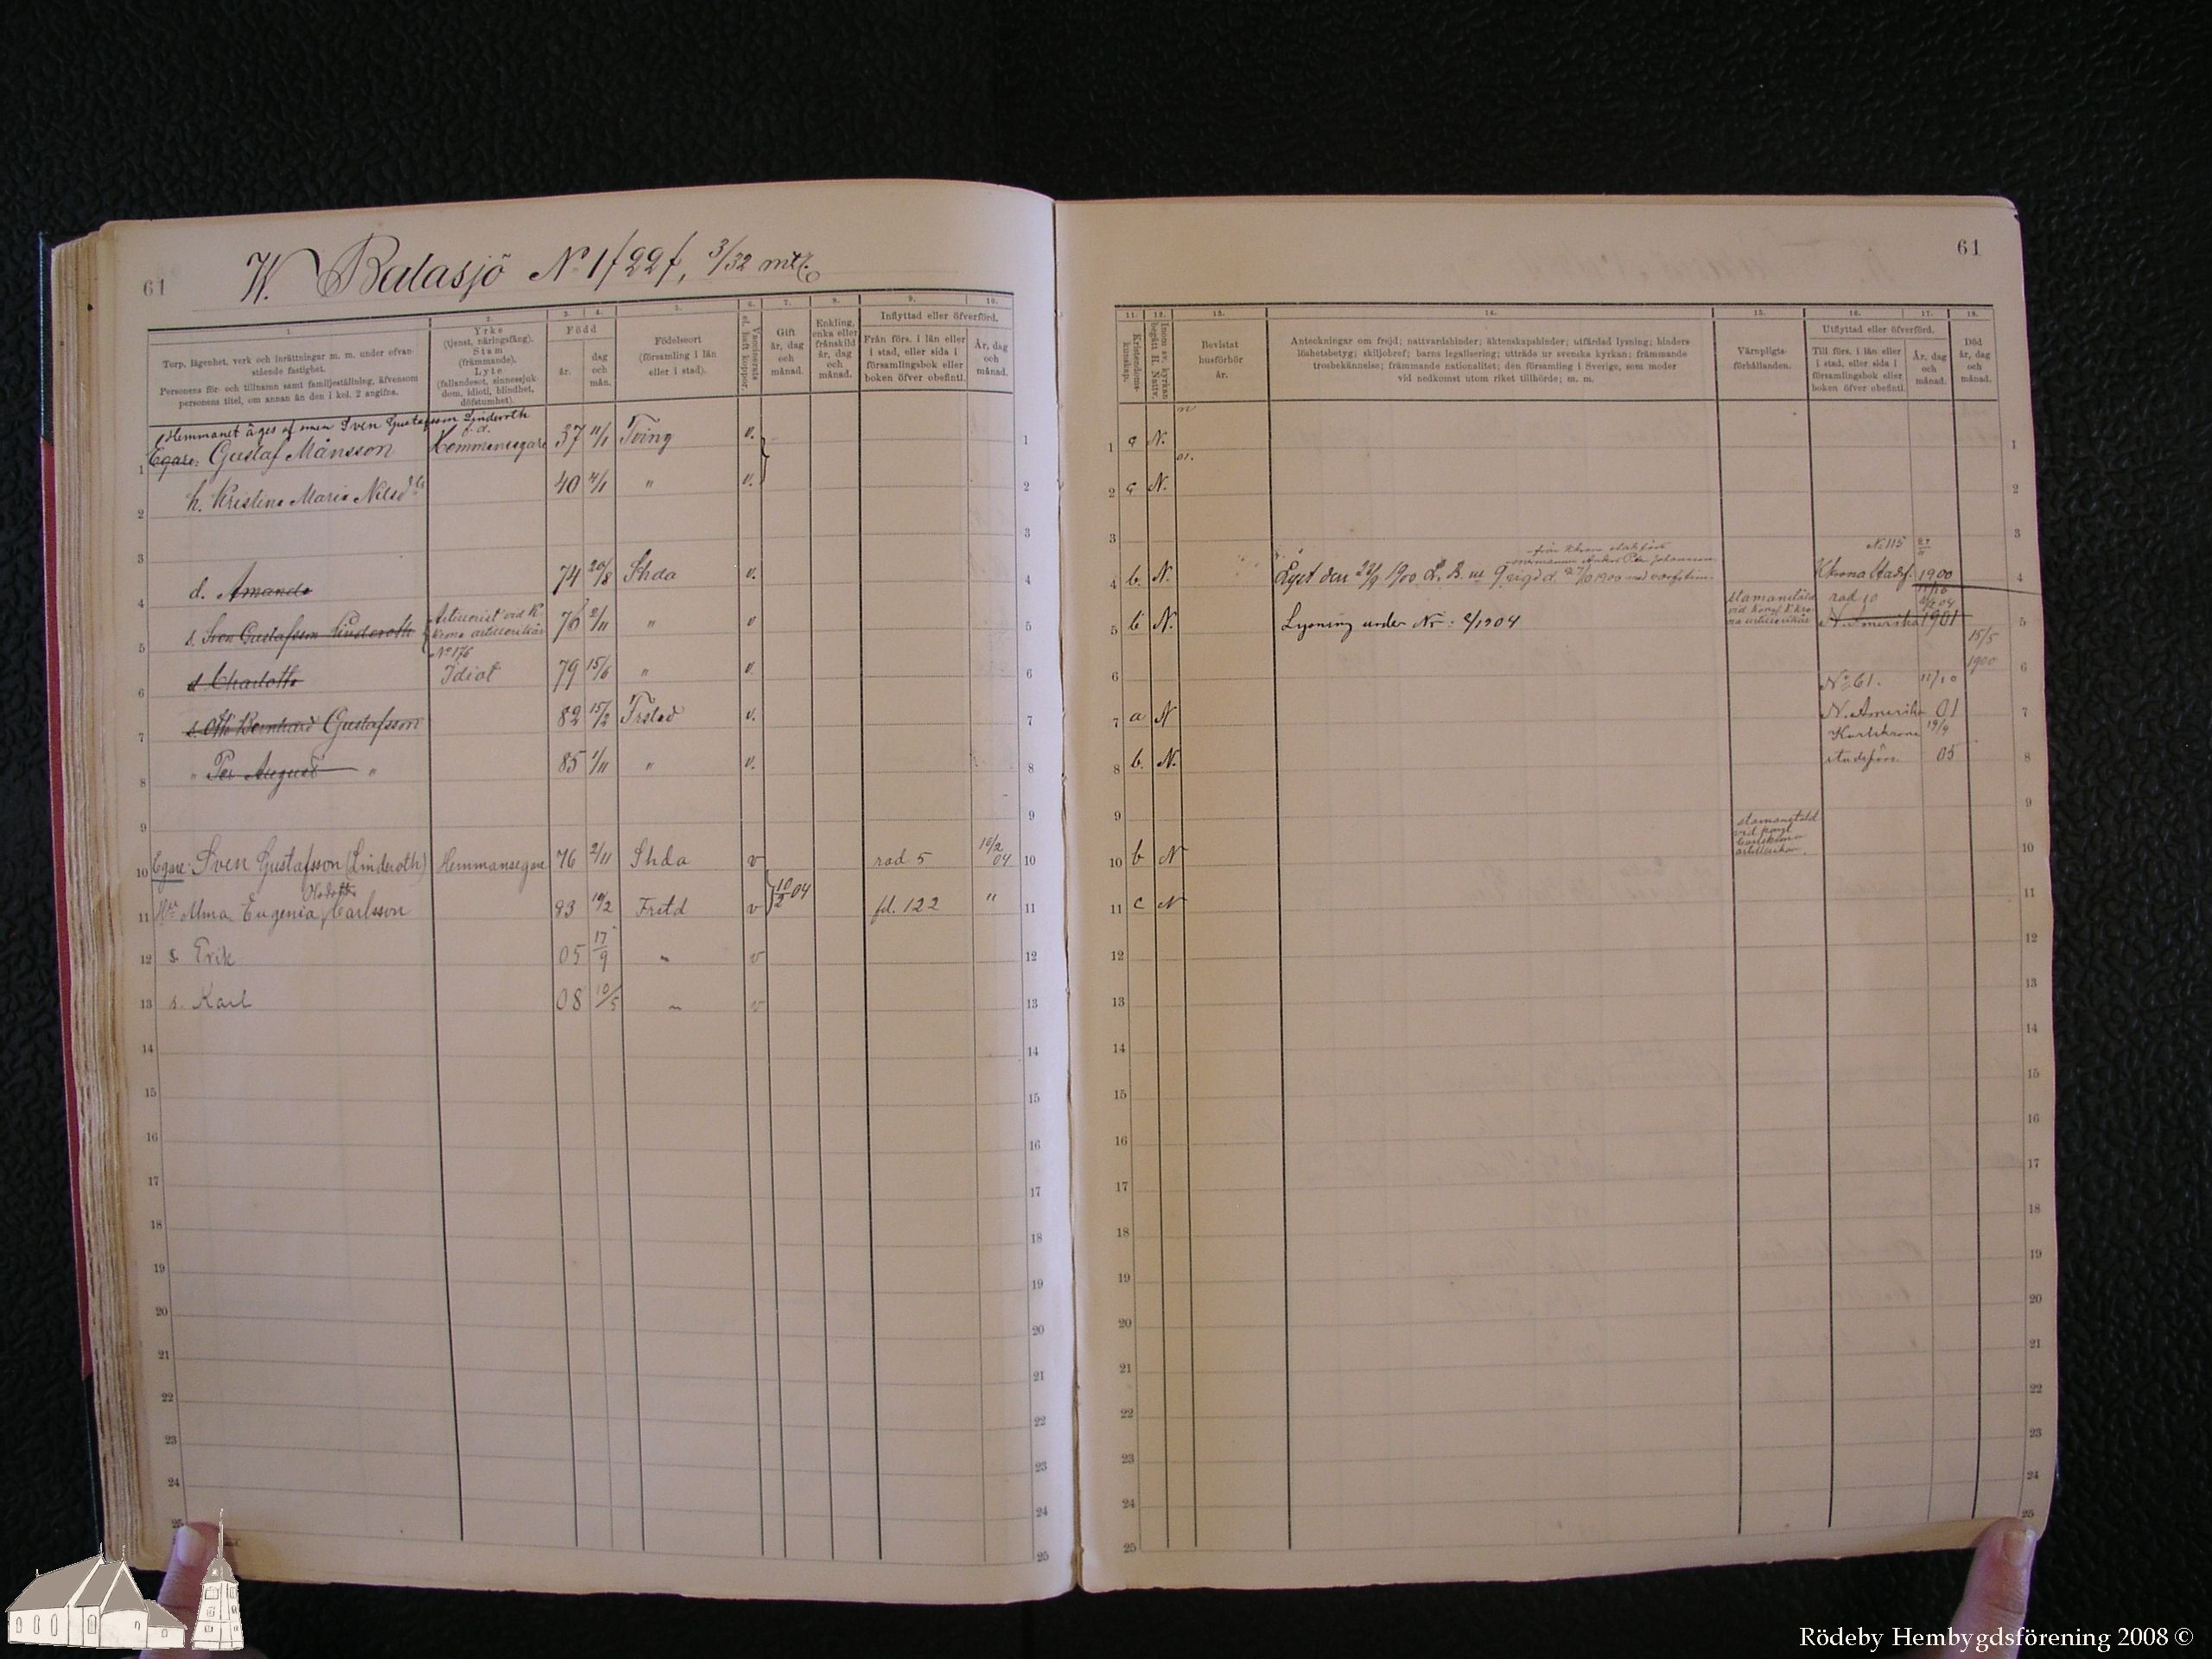 61
W. Balasjö No 1f22f, 3/32 mtl.
1. 2. 3. 4. 5. 6. 7. 8. 9. 10.
Torp, lägenhet, verk och inrättningar m. m. under ofvan-
stående fastighet.
Personens för- och tillnamn samt familjeställning, äfvensom
personens titel, om annan än den i kol. 2 angifna.
Yrke
(tjenst, näringsfång).
Stam
(främmande).
Lyte
(fallandesot, sinnessjuk-
dom, idioti, blindhet,
döfstumhet).
Född
år.
dag
och
mån.
Födelseort
(församling i län
eller i stad).
Vaccinerats
el. haft koppor.
Gift
år, dag
och
månad.
Enkling,
enka eller
frånskild
år, dag
och
månad.
Inflyttad eller öfverförd.
Från förs. i län eller
i stad, eller sida i
församlingsbok eller
boken öfver obefintl.
År, dag
och
månad.
Hemmanet äges af sonen Sven Gustafsson Linderoth
f. d.
1 Egare: Gustaf Månsson Hemmansegare 37 11/1 Tving v. 1
2 h. Kristina Maria Nilsdtr 40 4/1 " v. 2
3 3
4 d. Amanda 74 20/8 Shda v. 4
Artillerist vid K
5 s. Sven Gustafsson Linderoth krona artillerikår 76 2/11 " v 5
No 176
6 d Charlotta Idiot 79 15/6 " v. 6
7 s. Oth Bernhard Gustafsson 82 15/2 Frstad v. 7
8 " Per August " 85 1/11 " v. 8
9 9
10 Egare: Sven Gustafsson (Linderoth) Hemmansegare 76 2/11 Shda v rad 5 10/2 04 10
11 Hu Alma Eugenia Carlsson 93 10/2 Frstd v 10/2 04 fd. 122 " 11
12 s. Erik 05 17/9 " v 12
13 s. Karl 08 10/5 " v 13
14 14
15 15
16 16
17 17
18 18
19 19
20 20
21 21
22 22
23 23
24 24
25 25
61
11. 12. 13. 14. 15. 16. 17. 18.
Kristendoms-
kunskap.
Inom sv. kyrkan
begått H. Nattv.
Bevistat
husförhör
år.
Anteckningar om frejd; nattvardshinder; äktenskapshinder; utfärdad lysning; hinders
löshetsbetyg; skiljobref; barns legalisering; utträde ur svenska kyrkan; främmande
trosbekännelse; främmande nationalitet; den församling i Sverige, som moder
vid nedkomst utom riket tillhörde; m. m.
Värnpligts-
förhållanden.
Utflyttad eller öfverförd.
Till förs. i län eller
i stad, eller sida i
församlingsbok eller
boken öfver obefintl.
År, dag
och
månad.
Död
år, dag
och
månad.
1 a N. 1
2 a N. 2
3 3
No 115
4 b. N. Lyst den 1900 L. B. Kkrona stadsf. 1900 4
5 b N. Lysning under Nr: 2/1904 rad 10 N. Amerika 1901 5
15/5
6 1900 6
No 61. 11/10
7 a N N. Amerika 01 7
Karlskrona 19/9
8 b. N. stadsförs. 05 8
9 9
stamanstäld
vid kongl
Carlskrona
artillerikår.
10 b N 10
11 c N 11
12 12
13 13
14 14
15 15
16 16
17 17
18 18
19 19
20 20
21 21
22 22
23 23
24 24
25 25
Rödeby Hembygdsförening 2008 ©